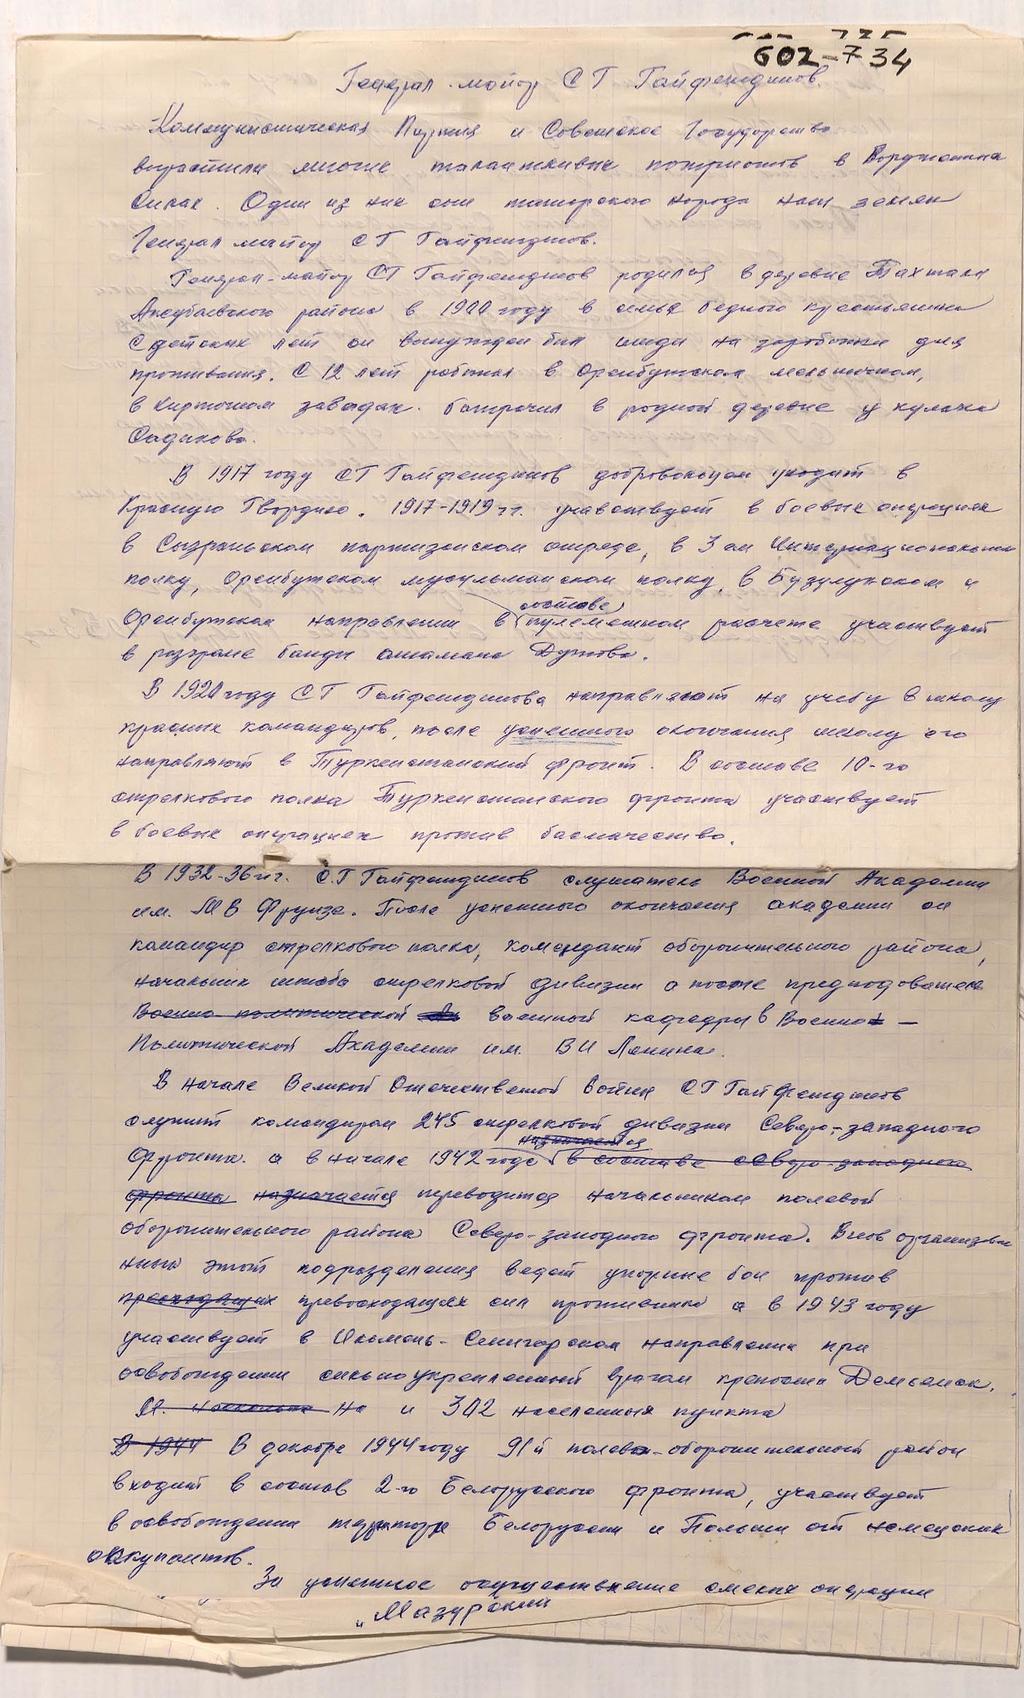 602-734
Генерал-майор С Г Гайфетдинов.
Коммунистическая Партия и Советское Государство
возрастила многие талантливые патриотов в Воруженных
Силах. Один из них сын татарского народа наш земляк
Генерал майор С Г Гайфетдинов.
Генерал-майор С Г Гайфетдинов родился в деревне Тахтала
Аксубаевского района в 1900 году в семье бедного крестьянина
С детских лет он вынужден был итди на заработки для
проживания. С 12 лет работал в Оренбугском мельничном,
в кирпичном заводах. батрачил в родной деревне у кулака
Садикова.
В 1917 году С Г Гайфетдинов добровольцем уходит в
Красную Гвардию. 1917-1919 гг. учавствует в боевых операциях
в Сызраньском партизанском отряде, в 3 ем Интернациональном
полку, Оренбугском мусульманском полку, в Бузулукском и
составе
Оренбугском направлении в пулеметном расчете участвует
в разгроме банды атамана Дутова.
В 1920 году С Г Гайфетдинова направляют на учебу в школу
красных командиров, после успешного окончания школу его
направляют в Туркенстанский фронт. В составе 10-го
стрелкового полка Туркенстанского фронта участвует
в боевых операциях против басмачества.
В 1932-36 гг. С.Г Гайфетдинов слушатель Военной Академии
им. М В Фрунзе. После успешного окончания академии он
командир стрелкового полка, комендант оборонительного района,
начальник штаба стрелковой дивизии а после предподователь
Военно политической военной кафедры в Военно-
Политической Академии им. В И Ленина.
В начале Великой Отечественой Войны С Г Гайфетдинов
служит командиром 245 стрелковой дивизии Северо-западного
назначается
фронта. а в начале 1942 года в составе северо-западного
фронта назначается переводится начальником полевой
оборонительного района Северо-западного фронта. Внов организован
ных этот подразделения ведет упорные бои против
превосходящих сил противника а в 1943 году
участвует в Ильмень-Семигорском направлении при
освобождении сильно укрепленной врагом крепости Демьянск.
на и 302 населенных пункта
В 1944 В декабре 1944 году 91й полево-оборонительный район
входит в состав 2-го Белорусского фронта, участвует
в освобождении территорр Белорусси и Польши от немецких
оккупантов.
За успешное осуществление смелых операции
„Мазурский